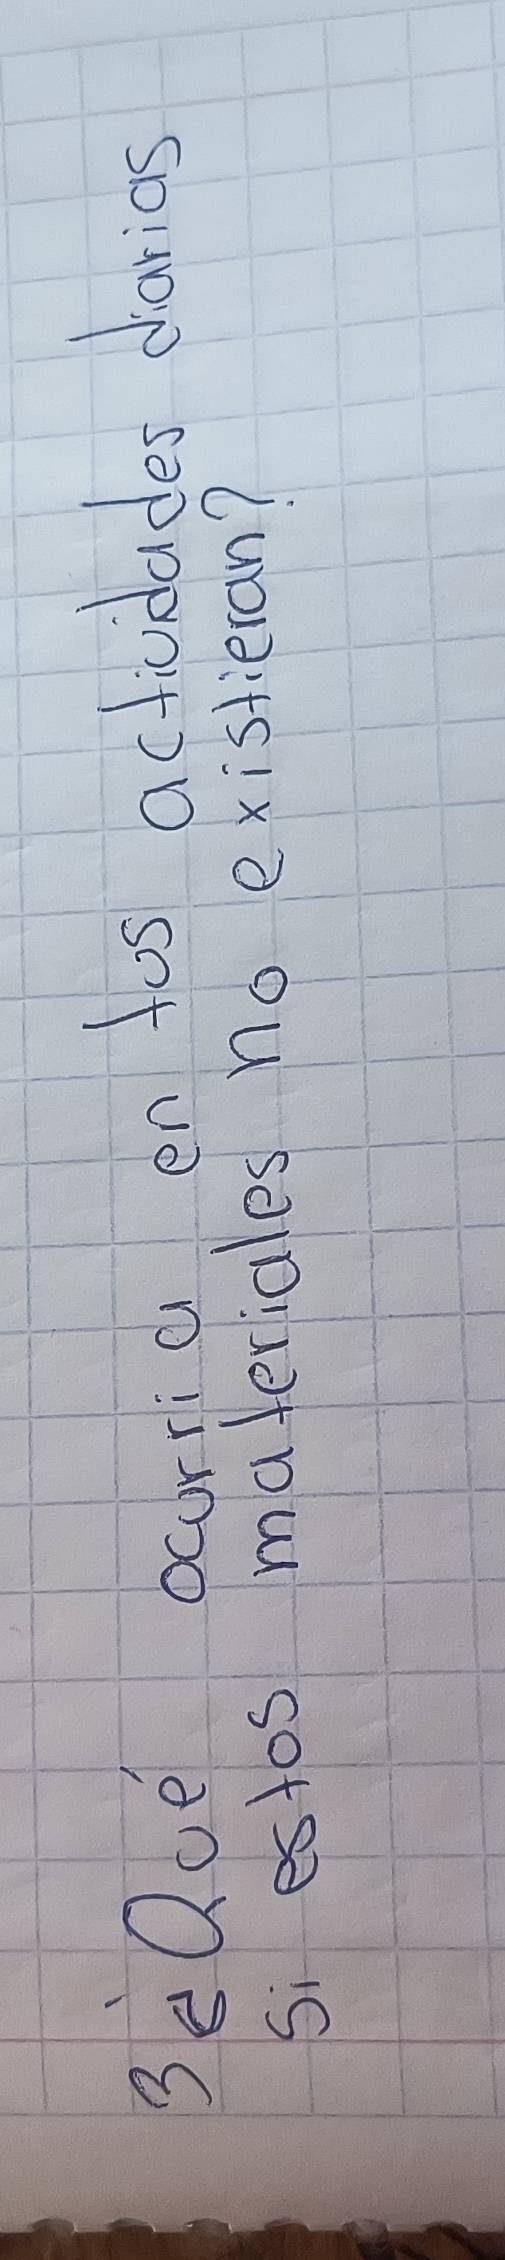 3 ¿Qué ocurria en tus actividades diarias
si estos materiales no existieran?